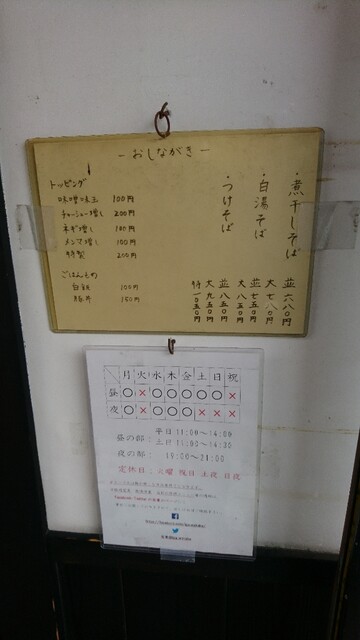 －おしながき－
・煮干しそば
並 六八〇円
大 七八〇円
・白湯そば
並 七五〇円
大 八五〇円
・つけそば
並 八五〇円
大 九五〇円
特 一〇五〇円
トッピング
味噌味玉 100円
チャーシュー増し 200円
ネギ増し 100円
メンマ増し 100円
特製 200円
ごはんもの
白飯 100円
豚丼 150円
月 火 水 木 金 土 日 祝
昼 ○ × ○ ○ ○ ○ ○ ×
夜 ○ × ○ ○ ○ × × ×
昼の部: 平日 11:00～14:00
土日 11:00～14:30
夜の部: 19:00～21:00
定休日: 火曜 祝日 土夜 日夜